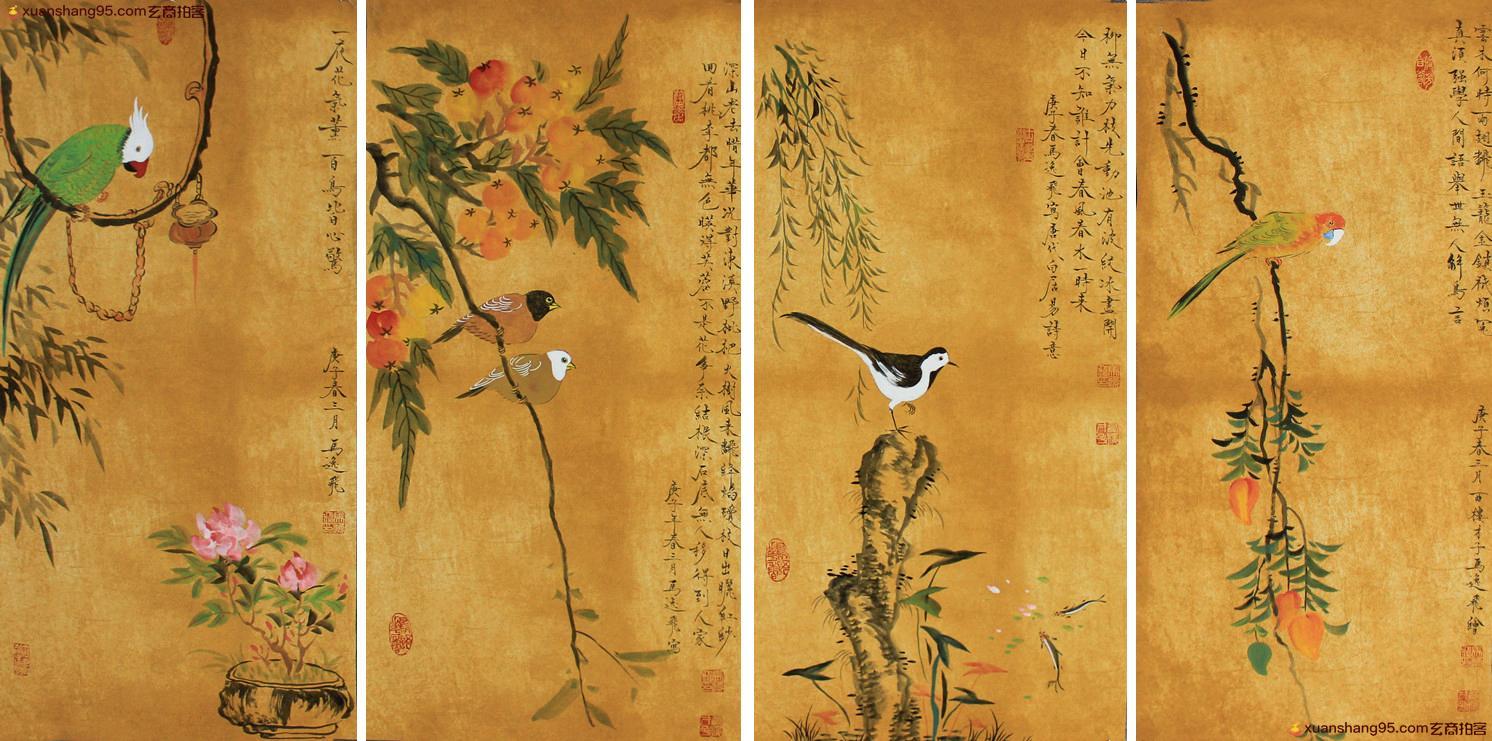 xuanshang95.com玄商拍客
一庭花氣薰 百鳥皆心驚
庚午春三月 馬逸飛
深山老去惜年華況對東溪野枇杷火樹風來翻絳焰瓊枝日出曬紅紗
回看桃李都無色映得芙蓉不是花爭奈結根深石底無人移得到人家
庚午年春三月馬逸飛寫
柳無氣力枝先動池有波紋冰盡開
今日不知誰計會春風春水一時來
庚午春馬逸飛寫唐代白居易詩意
雲木何時兩翅翻玉籠金鎖秪煩冤
真須強學人間語舉世無人解鳥言
庚午春三月百樓才子馬逸飛繪
xuanshang95.com玄商拍客